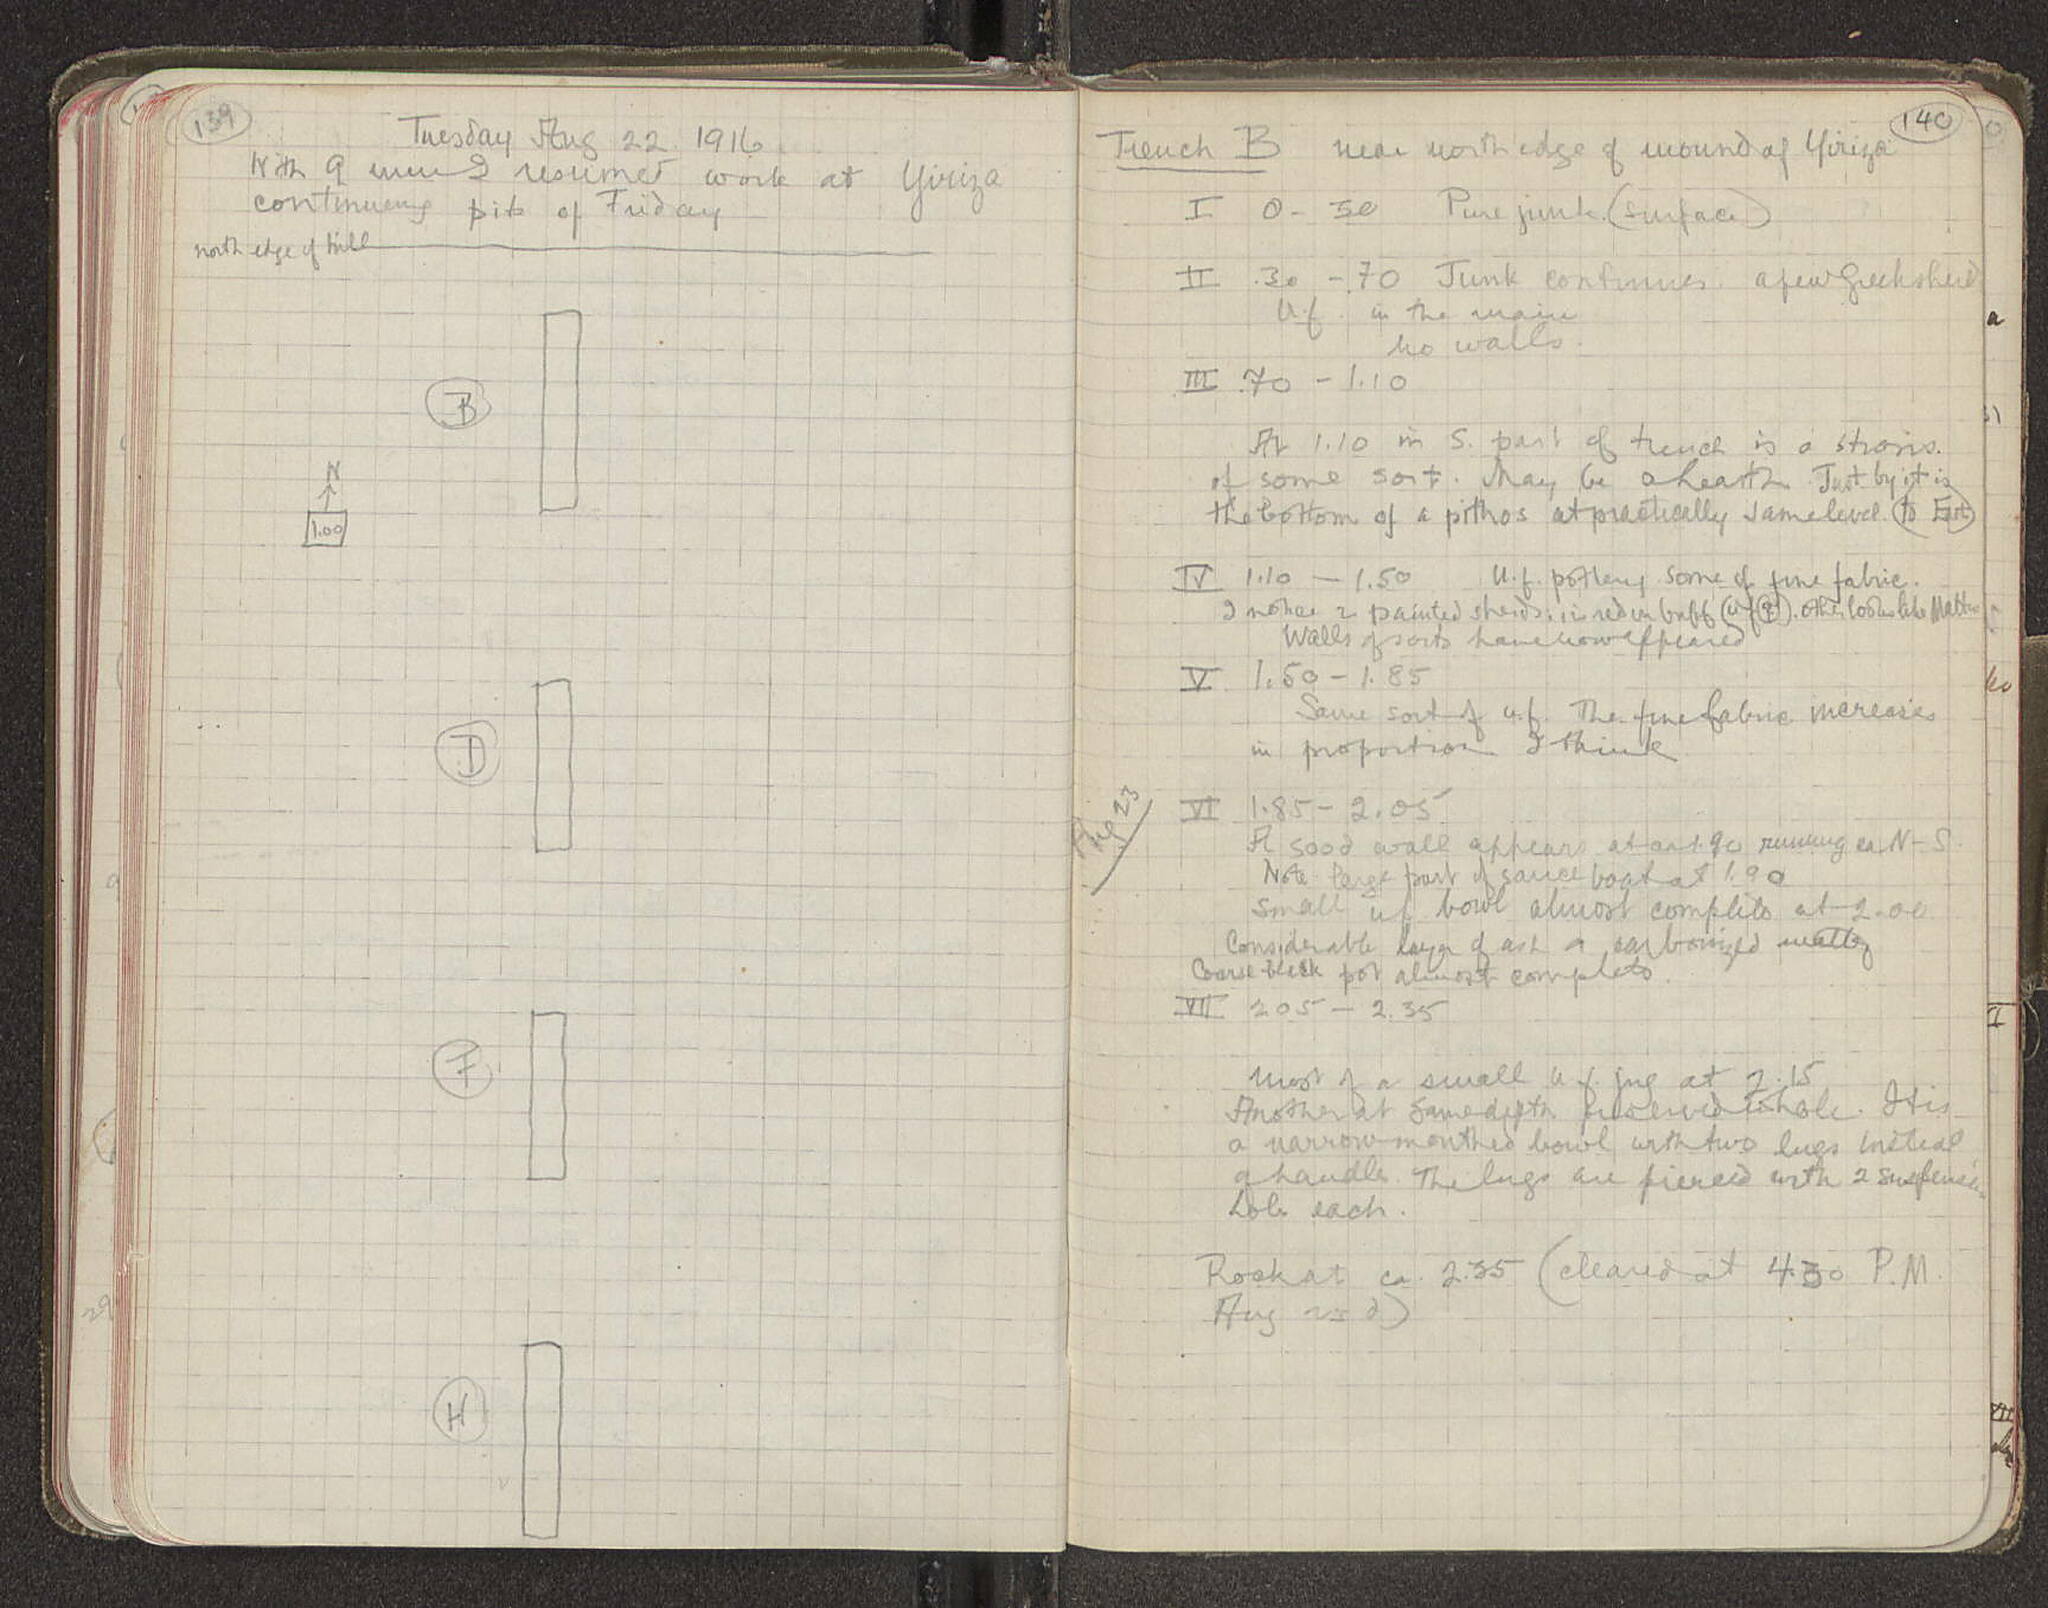 139
Tuesday Aug 22 1916
With 9 men I resumed work at Yiriza
continuing pits of Friday
north edge of hill
B
N
1.00
D
F
H
140
Trench B near north edge of mound of Yiriza
I 0 - 30 Pure junk. (surface)
II .30 - .70 Junk continues. a few Greek sherds
U.f. in the main
No walls.
III .70 - 1.10
At 1.10 in S. part of trench is a strosis.
of some sort. May be a hearth. Just by it is
the bottom of a pithos at practically same level. (to East)
IV 1.10 - 1.50 U.f. pottery some of fine fabric.
I notice 2 painted sherds: 1 is red on buff (u f ?). other looks like Matt
Walls of sorts have now appeared
V 1.50 - 1.85
Same sort of u.f. The fine fabric increases
in proportion I think
Aug 23
VI 1.85 - 2.05
A good wall appears at 1.90 running ca. N-S.
Note large part of sauce boat at 1.90
Small uf bowl almost complete at 2.00
Considerable layer of ash & carbonized matter
Coarse black pot almost complete.
VII 2.05 - 2.35
Most of a small u.f. jug at 2.15
Another at same depth preserved whole. It is
a narrow mouthed bowl with two lugs instead
of handles. The lugs are pierced with 2 suspension
hole each.
Rock at ca. 2.35 (cleared at 4.30 P.M.
Aug 23 d)